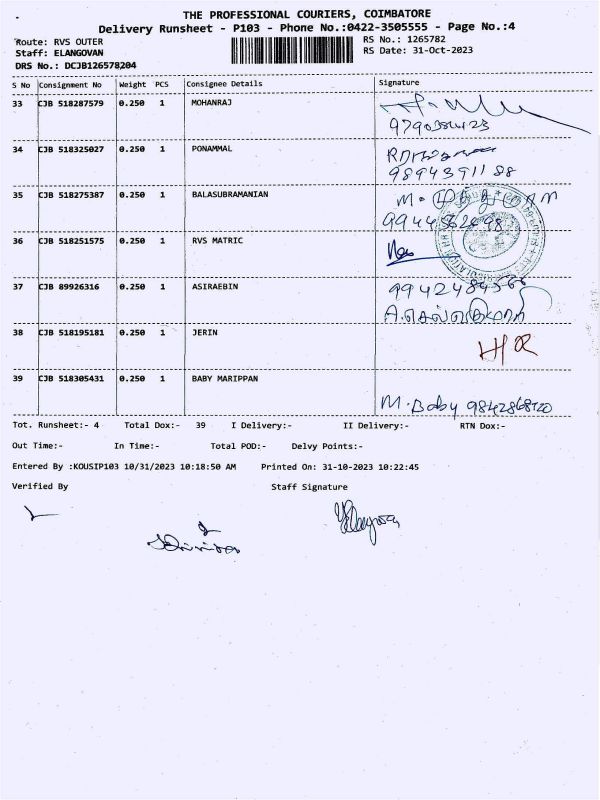 THE PROFESSIONAL COURIERS, COIMBATORE
Delivery Runsheet - P103 - Phone No.:0422-3505555 - Page No.:4
Route: RVS OUTER
RS No.: 1265782
Staff: ELANGOVAN
RS Date: 31-Oct-2023
DRS No.: DCJB126578204
S No Consignment No Weight PCS Consignee Details Signature
33 CJB 518287579 0.250 1 MOHANRAJ
34 CJB 518325027 0.250 1 PONAMMAL
9894391188
35 CJB 518275387 0.250 1 BALASUBRAMANIAN
36 CJB 518251575 0.250 1 RVS MATRIC
37 CJB 89926316 0.250 1 ASIRAEBIN
A.செல்வகுமாரி
38 CJB 518195181 0.250 1 JERIN
HR
39 CJB 518305431 0.250 1 BABY MARIPPAN
M. Baby
Tot. Runsheet:- 4 Total Dox:- 39 I Delivery:- II Delivery:- RTN Dox:-
Out Time:- In Time:- Total POD:- Delvy Points:-
Entered By :KOUSIP103 10/31/2023 10:18:50 AM Printed On: 31-10-2023 10:22:45
Verified By Staff Signature